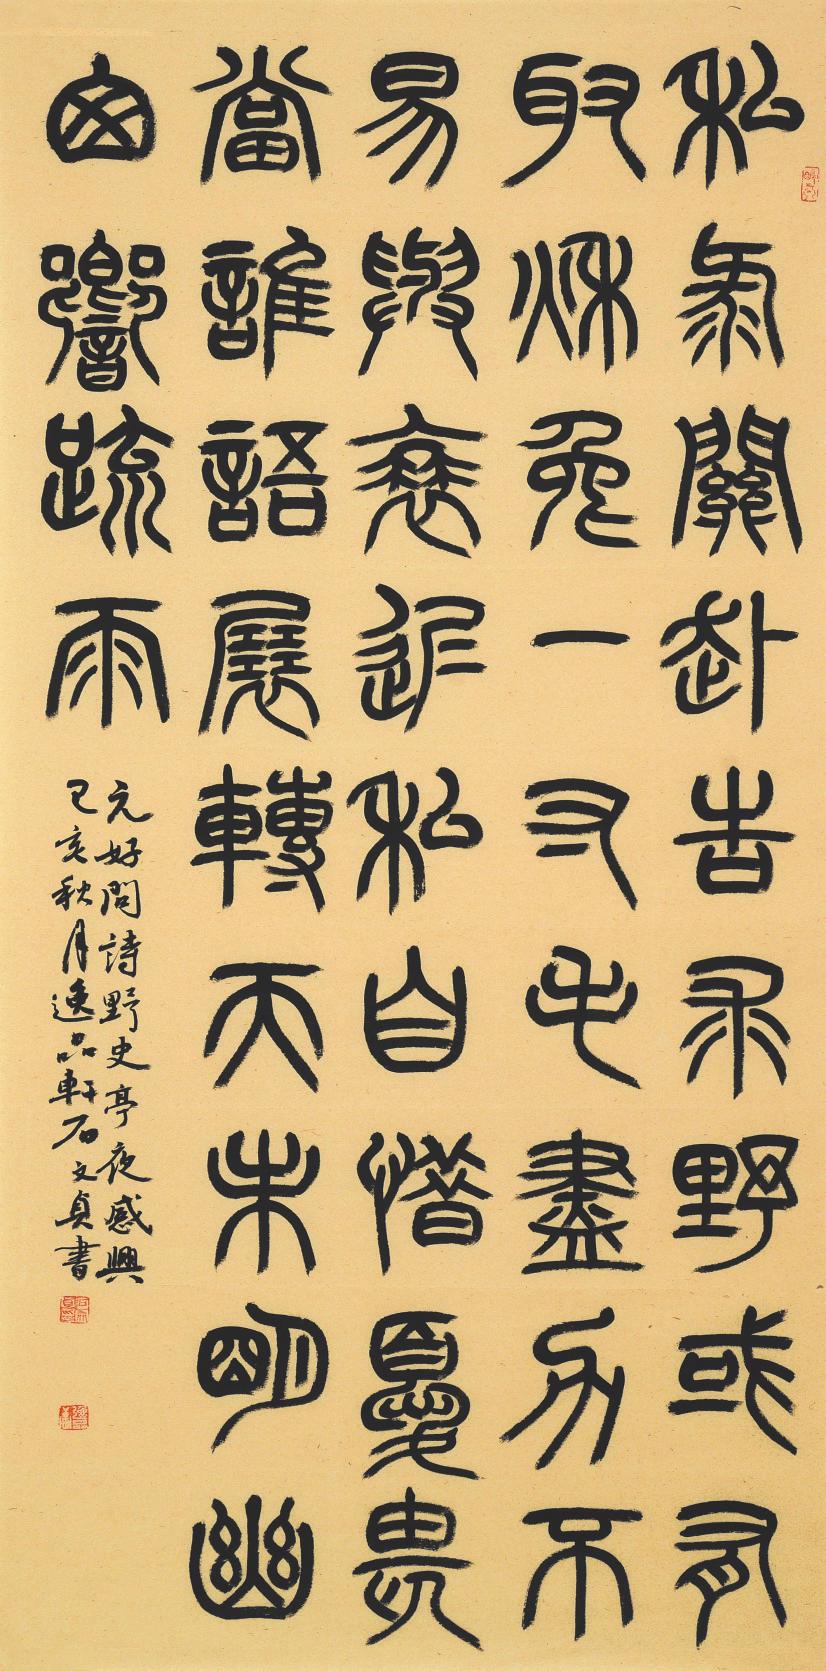 私彔關赴告求野或有
取秋兔一寸毛盡力不
易與衰迟私自惜憂畏
當誰語展轉天未明幽
囪響疏雨
元好問詩野史亭夜感興
己亥秋月逸品軒石文貞書